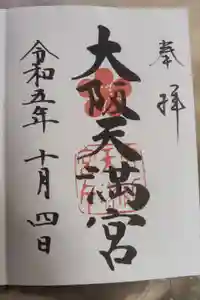 奉拝
大阪天満宮
令和五年十月四日